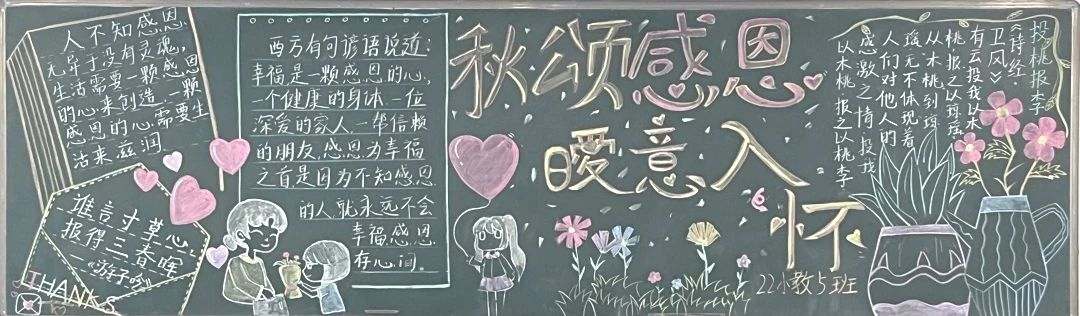 人不知感恩,
无异于没有灵魂,
生活需要一颗感恩
的心来创造,一颗
感恩的心,需要生
活来滋润.
谁言寸草心,
报得三春晖
—《游子吟》
THANKS
西方有句谚语说道:
幸福是一颗感恩的心,
一个健康的身体.一位
深爱的家人,一帮信赖
的朋友,感恩为幸福
之首是因为不知感恩
的人,就永远不会
幸福,感恩
存心间。
秋颂感恩
暖意入
怀
22小教5班
投桃报李
《诗经·
卫风》
有云投我以木
桃,报之以琼瑶
从木桃到琼
瑶无不体现着
人们对他人的
感激之情.投我
以木桃,报之以桃李